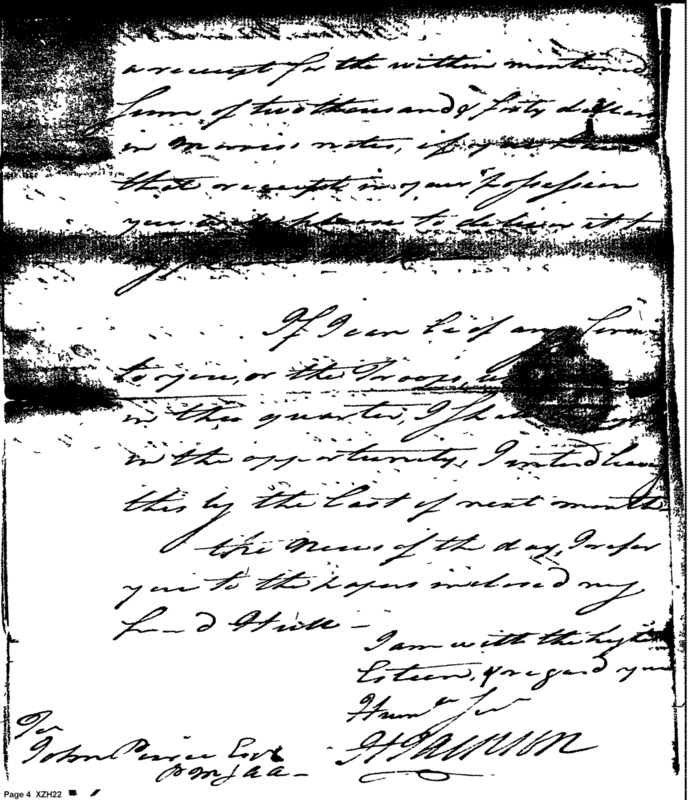 a receipt for the within mentioned
sum of two thousand & sixty dollars
in Morris notes, if you have
that receipt in your possession
you will please to deliver it
If I can be of any service
to you, or the Troops,
in this quarter, I shall
in the opportunity, I intend leaving
this by the last of next month
the News of the day, I refer
you to the papers inclosed my
friend Hull —
I am with the highest
Esteem, & regard your
Humble Ser
H Jackson
To
John Pierce Esqr
P M G A A —
Page 4 XZH22